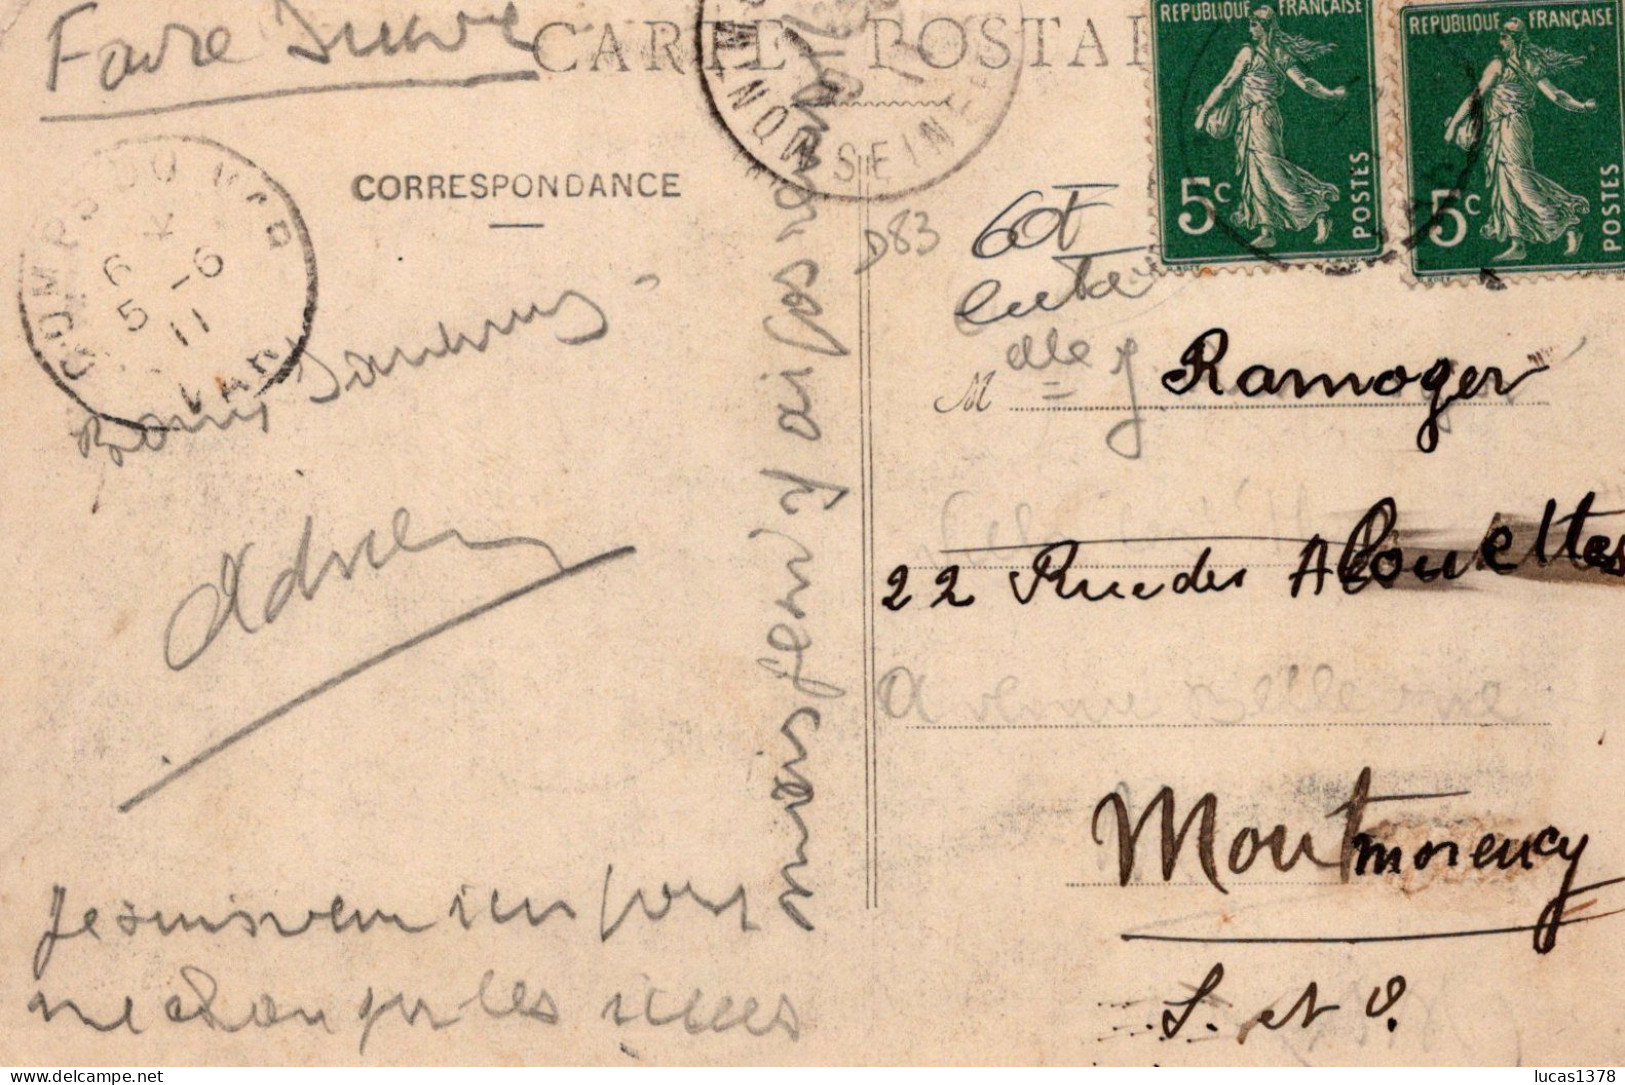 Faire suivre
CARTE POSTAL
RÉPUBLIQUE FRANÇAISE
5c POSTES
RÉPUBLIQUE FRANÇAISE
5c POSTES
SEINE
CORRESPONDANCE
COMPS DU VAR
6
5 -6
11
VAR
D83
60F
Bons
Adrien
Je suis venu ici pour
me changer les idées
mais j'en y ai pas
M
elle J Ramoger
22 Rue des Alouettes
Avenue Bellevue
Montmorency
S. et O.
lucas1378